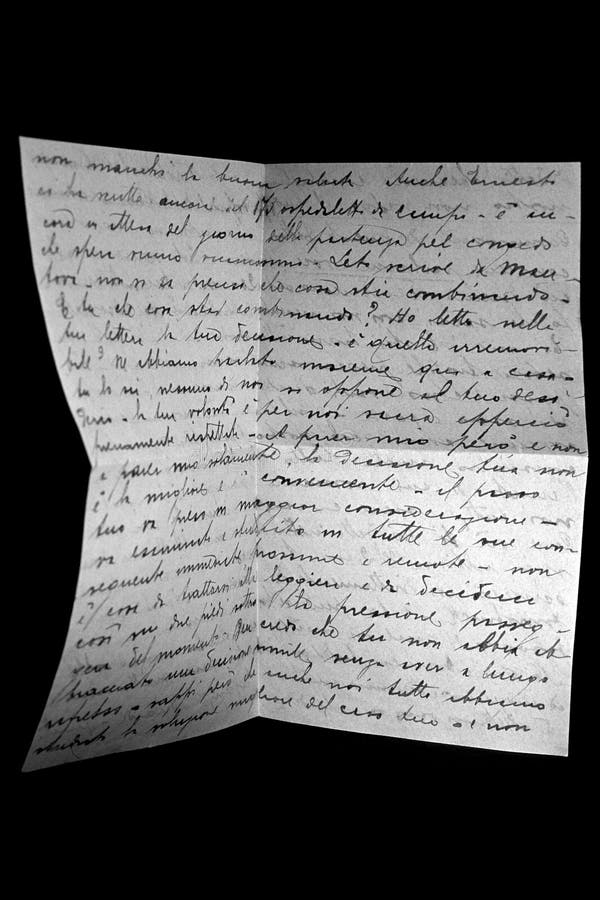 non manchi la buona salute Anche Ernesto
ci ha scritto ancora dal 178 ospedaletto da campo - è an-
cora in attesa del giorno della partenza pel congedo
che spera vicino - Leto scrive da Man-
tova - non si sa precisa che cosa stia combinando -
E tu che cosa stai combinando? Ho letto nella
tua lettera la tua decisione - è quella irremovi-
bile? Ne abbiamo parlato insieme qui a casa -
tu lo sai, nessuno di noi si oppone al tuo desi
derio - la tua volontà è per noi sacra epperciò
pienamente rispettata - A parer mio però e non
a parer mio solamente, la decisione tua non
è la migliore e conveniente - il passo
tuo va preso in maggior considerazione -
va esaminato e studiato in tutte le sue con-
seguenze immediate prossime e remote - non
è cosa da trattarsi alla leggiera e da decidersi
così su due piedi sotto la pressione
del momento - credo che tu non abbia
tracciato una decisione simile senza aver a lungo
riflesso - sappi però che anche noi tutti abbiamo
studiato la soluzione migliore del caso tuo - e non